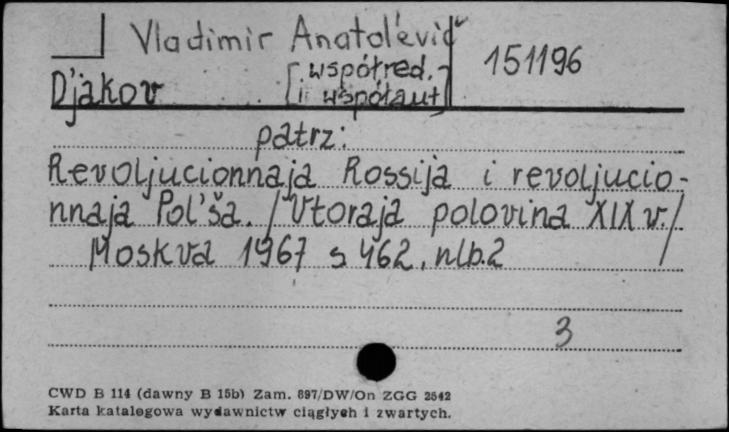 Vladimir Anatol'evič 151196
D'jakov [współred.
i współaut]
patrz:
Revoljucionnaja Rossija i revoljucio-
nnaja Pol'ša. /Vtoraja polovina XIX v./
Moskva 1967 s 462, nlb.2
3
CWD B 114 (dawny B 15b) Zam. 897/DW/On ZGG 2542
Karta katalogowa wydawnictw ciągłych i zwartych.